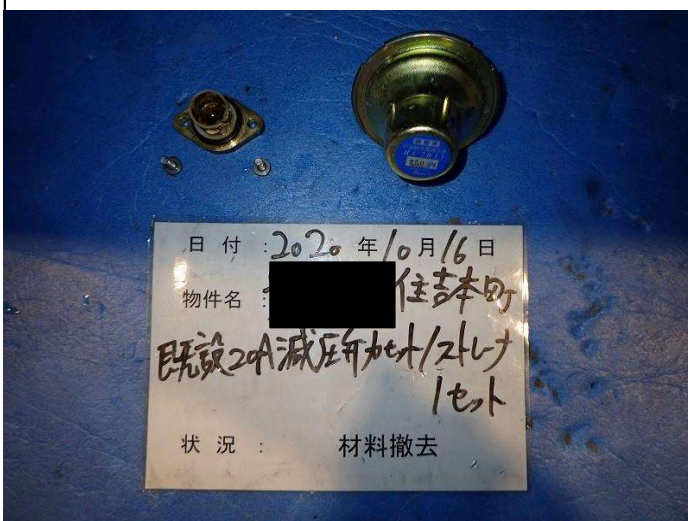 日付：2020年10月16日
物件名： 住吉本町
既設20A減圧弁カセット/ストレーナ
1セット
状況： 材料撤去